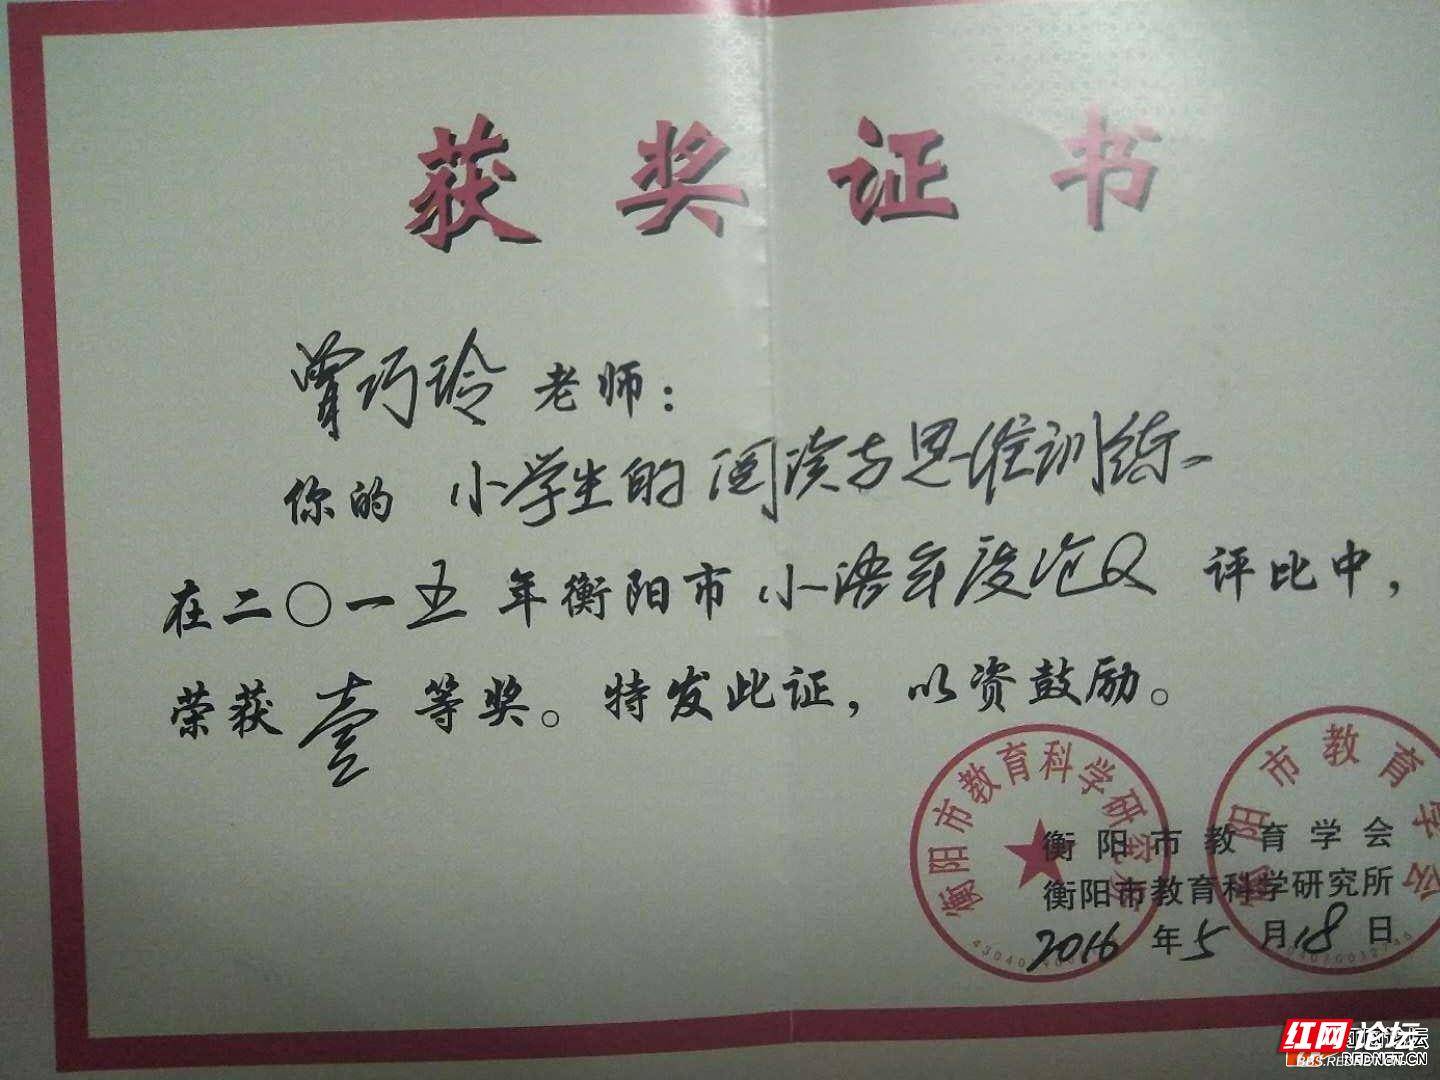 获奖证书
曾巧玲老师：
你的 小学生的阅读与思维训练
在二〇一五年衡阳市小语年度论文评比中，
荣获壹等奖。特发此证，以资鼓励。
衡阳市教育科学研究所
衡阳市教育学会
衡阳市教育学会
衡阳市教育科学研究所
2016年5月18日
红网论坛
BBS.REDNET.CN
REDNET.CN